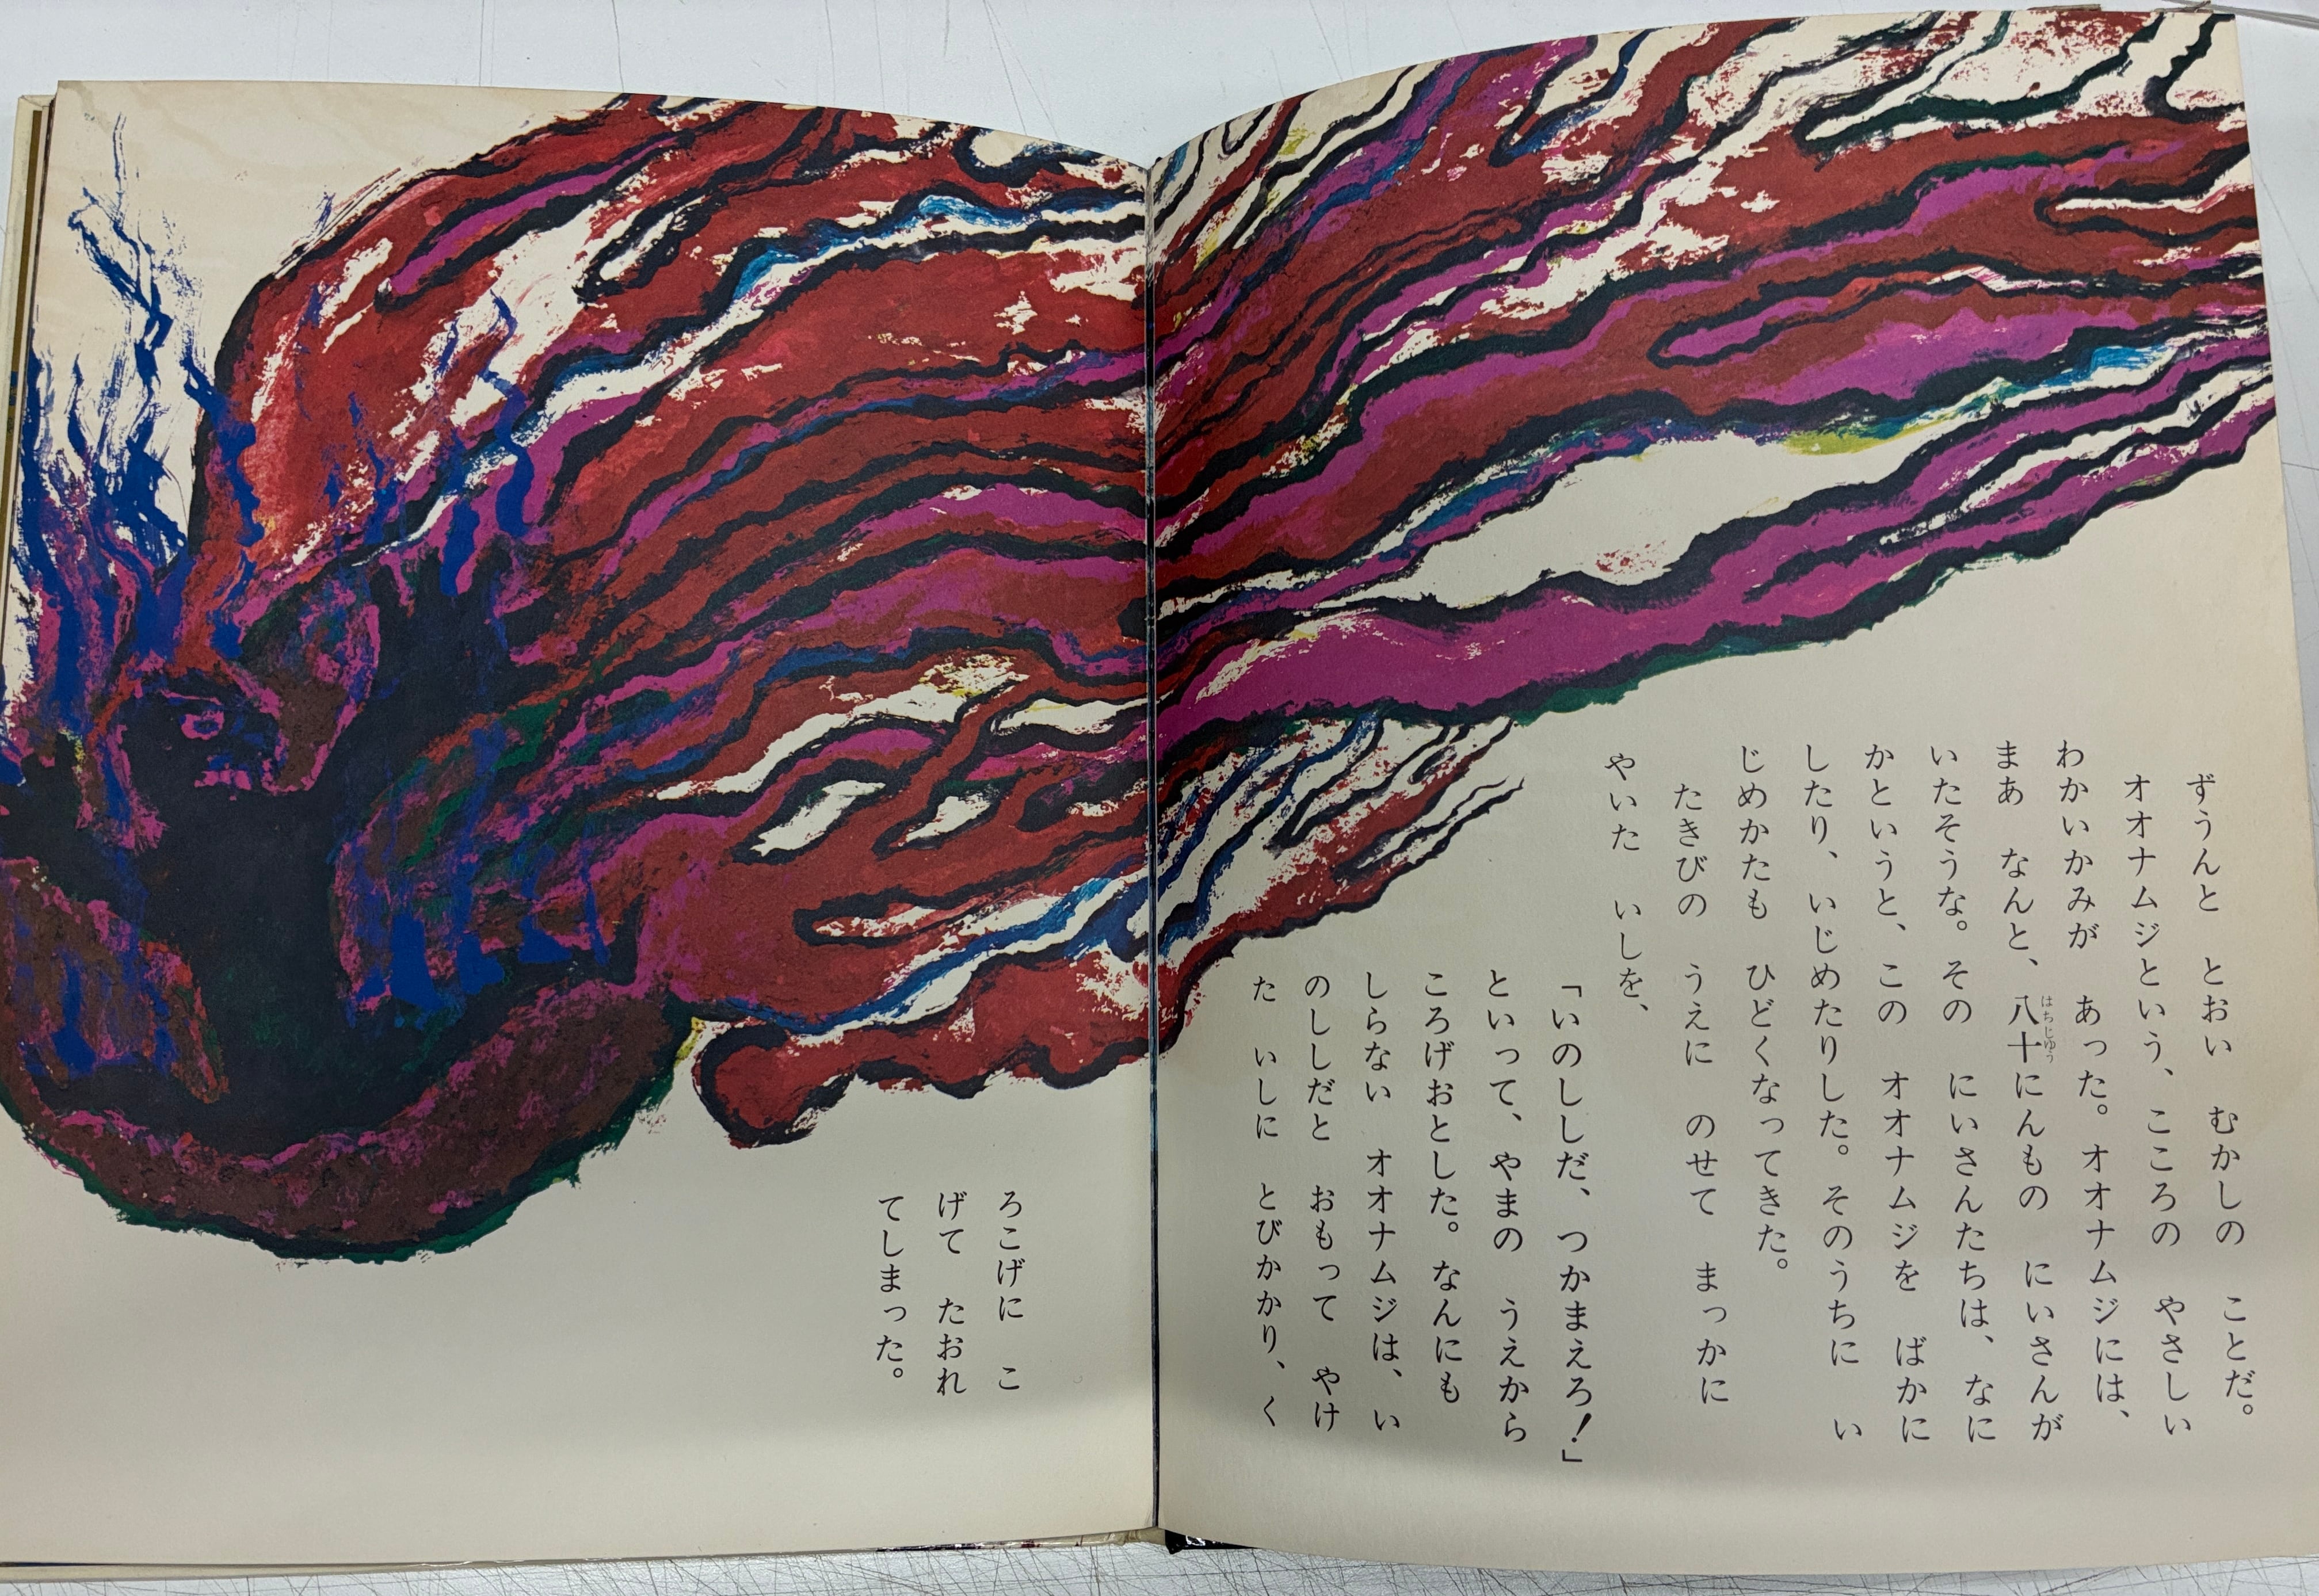 ずうんと　とおい　むかしの　ことだ。
オオナムジという、こころの　やさしい
わかいかみが　あった。オオナムジには、
まあ　なんと、八十にんもの　にいさんが
はちじゆう
いたそうな。その　にいさんたちは、なに
かというと、この　オオナムジを　ばかに
したり、いじめたりした。そのうちに　い
じめかたも　ひどくなってきた。
たきびの　うえに　のせて　まっかに
やいた　いしを、
「いのししだ、つかまえろ！」
といって、やまの　うえから
ころげおとした。なんにも
しらない　オオナムジは、い
のししだと　おもって　やけ
た　いしに　とびかかり、く
ろこげに　こ
げて　たおれ
てしまった。